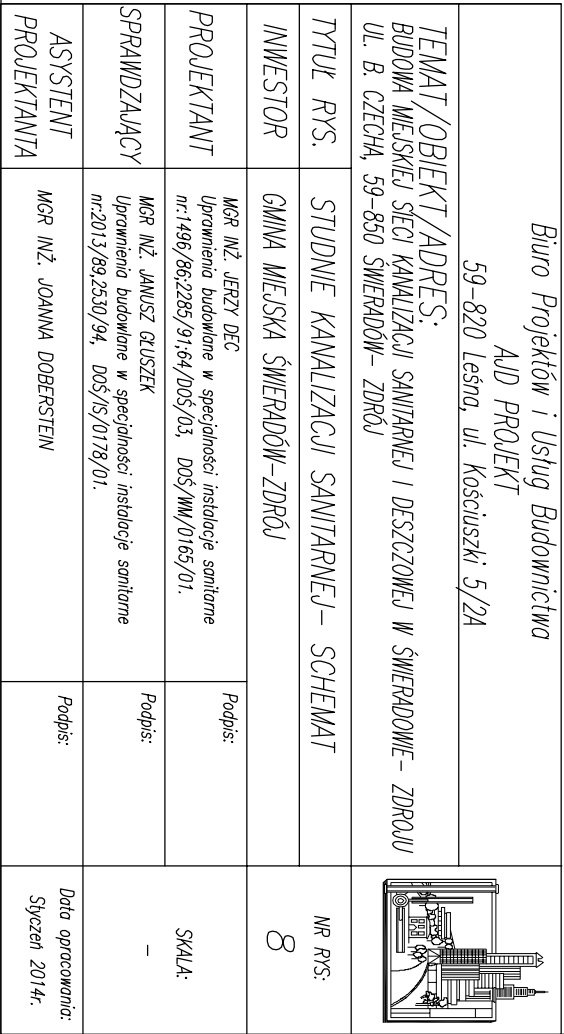 Biuro Projektów i Usług Budownictwa
AJD PROJEKT
59-820 Leśna, ul. Kościuszki 5/2A
TEMAT/OBIEKT/ADRES:
BUDOWA MIEJSKIEJ SIECI KANALIZACJI SANITARNEJ I DESZCZOWEJ W ŚWIERADOWIE- ZDROJU
UL. B. CZECHA, 59-850 ŚWIERADÓW- ZDRÓJ
TYTUŁ RYS.
STUDNIE KANALIZACJI SANITARNEJ- SCHEMAT
NR RYS:
8
INWESTOR
GMINA MIEJSKA ŚWIERADÓW-ZDRÓJ
PROJEKTANT
MGR INŻ. JERZY DEC
Uprawnienia budowlane w specjalności instalacje sanitarne
nr:1496/86;2285/91;64/DOŚ/03, DOŚ/WM/0165/01.
Podpis:
SKALA:
-
SPRAWDZAJĄCY
MGR INŻ. JANUSZ GŁUSZEK
Uprawnienia budowlane w specjalności instalacje sanitarne
nr:2013/89,2530/94, DOŚ/IS/0178/01.
Podpis:
ASYSTENT
PROJEKTANTA
MGR INŻ. JOANNA DOBERSTEIN
Podpis:
Data opracowania:
Styczeń 2014r.